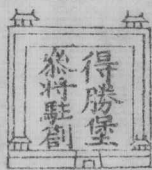 得勝堡
叅将駐劄